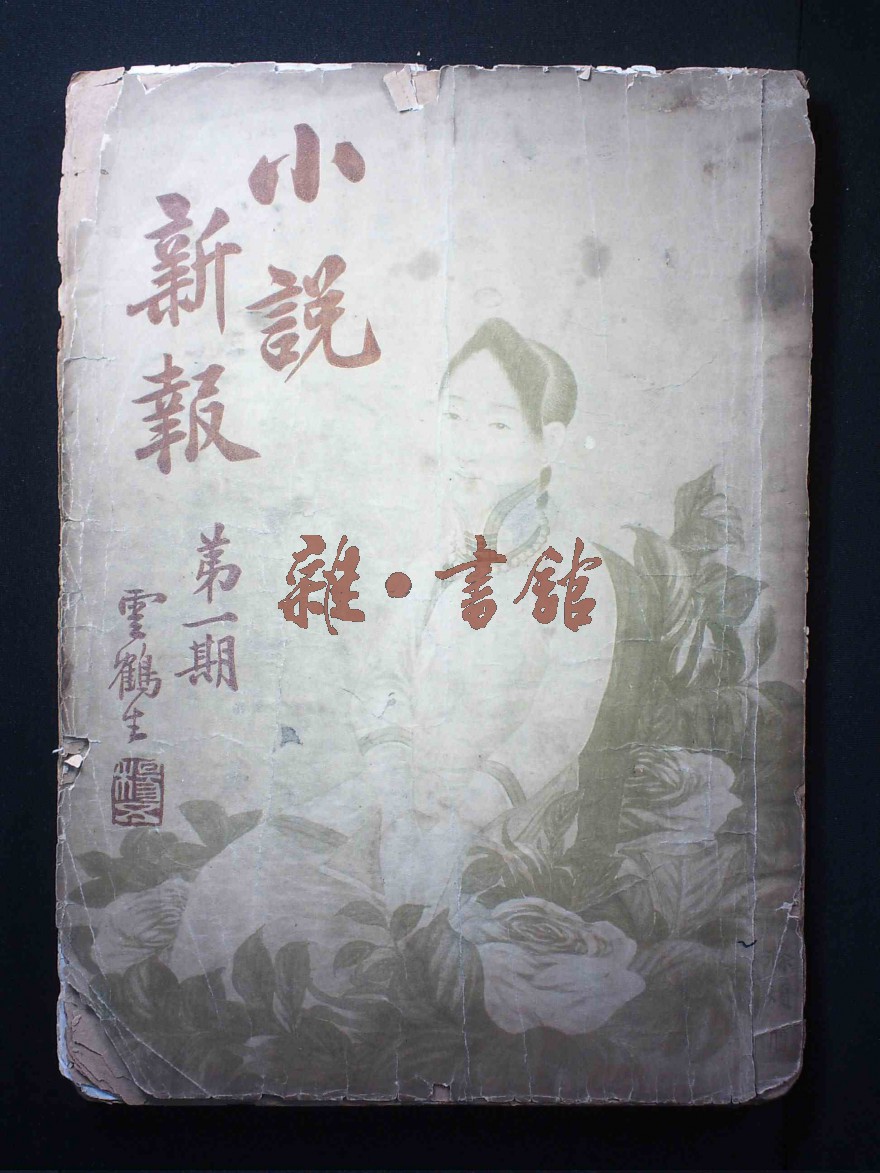 小説
新報
第一期
雲鶴生
雜·書館